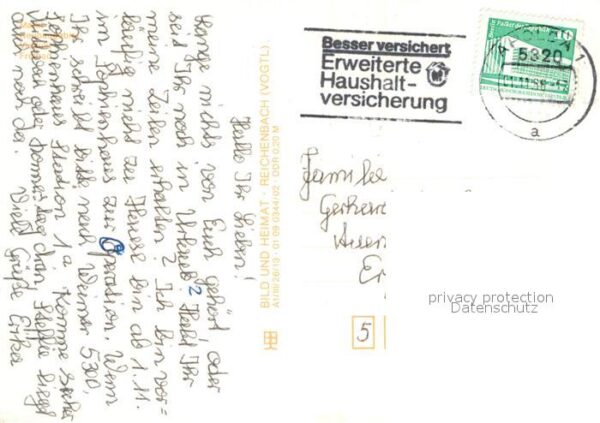 Hallo Ihr Lieben!
Lange nichts von Euch gehört oder
seid Ihr noch in Urlaub? Habt Ihr
meine Zeilen erhalten? Ich bin vor-
läufig nicht zu Hause bin ab 1.11.
im Sophienhaus zur Operation. Wenn
Ihr schreibt bitte nach Weimar 5300,
Sophienhaus Station 1a. Komme sicher
oder Donnerstag dran, Steffie liegt
auch da. Viele Grüße Erika
BILD UND HEIMAT · REICHENBACH (VOGTL)
A1/III/26/13 · 01 09 0344/02 · DDR 0,20 M
Besser versichert
Erweiterte
Haushalt-
versicherung
APOLDA 1
5320
a
10
Familie
5
privacy protection
Datenschutz